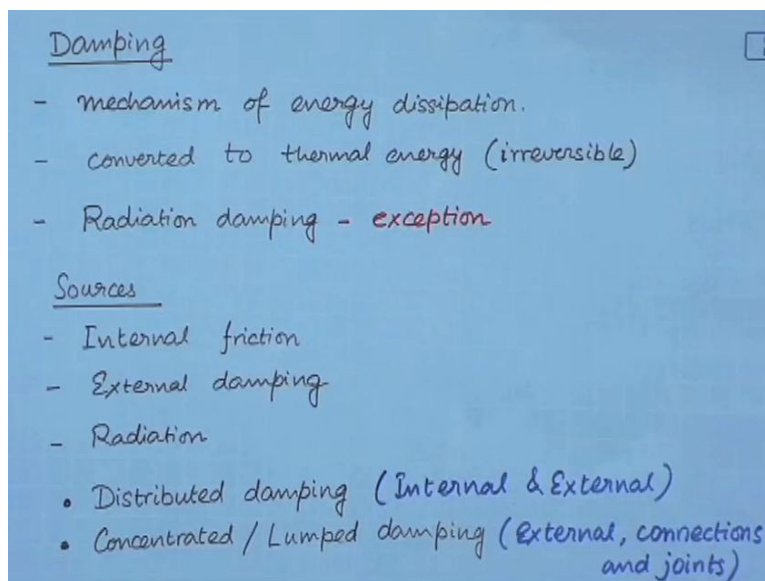 Damping
- mechanism of energy dissipation.
- converted to thermal energy (irreversible)
- Radiation damping - exception
Sources
- Internal friction
- External damping
- Radiation
• Distributed damping (Internal & External)
• Concentrated / Lumped damping (External, connections
and joints)